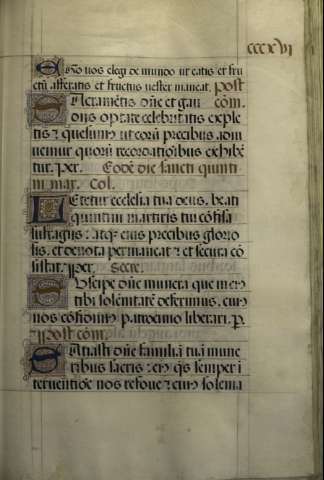 cccxvi
Ego vos elegi de mundo ut eatis et fru
ctū afferatis et fructus vester maneat. Post
Sacramētis dn̄e et gau com.
diis optate celebritatis exple
tis: quesumus ut eorū precibus adiu
vemur quorū recordatiōibus exhibē
tur. per. Eodē die sancti quinti
ni mar. Col.
Letetur ecclesia tua deus, beati
quintini martiris tui cōfisa
suffragiis: atq; eius precibus glorio
sis, et devota permaneat: et secura cō
sistat. per. Secre.
Suscipe dn̄e munera que in eius
tibi solennitate deferimus, cuius
nos cōfidimus patrocinio liberari. p.
Post com.
Satiasti dn̄e familiā tuā mune
ribus sacris: eius q̄s semper i
terventiōe nos refove: cuius solenia